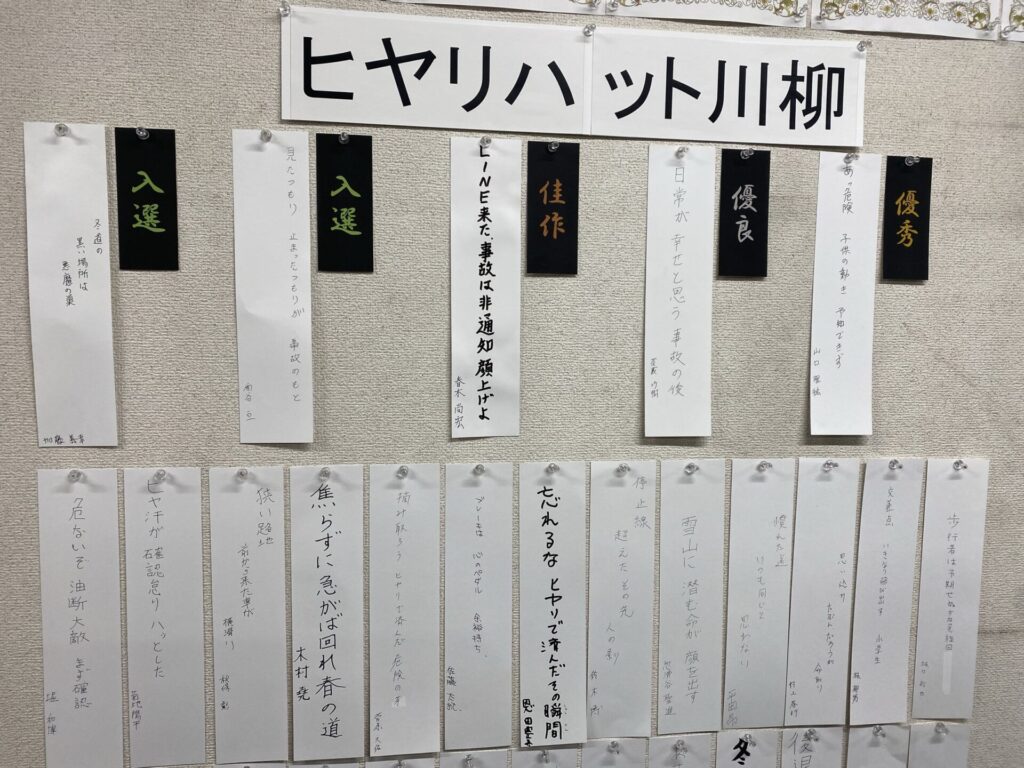 ヒヤリハット川柳
優秀
あッ危険 子供の動き 予知できず
山口
優良
日常が 幸せと思う 事故の後
佳作
LINE来た、事故は非通知 顔上げよ
春木 尚宏
入選
見たつもり 止まったつもりが 事故のもと
入選
冬道の
黒い場所は
悪魔の巣
加藤
歩行者は予期せぬ
交差点 いきなり飛び出す 小学生
思い切り
命取り
村上
慣れた道
いつも同じと
思わない
雪山に 潜む命が 顔を出す
停止線
超えたその先
人の影
鈴木
忘れるな ヒヤリで済んだその瞬間
ブレーキは 心のペダル 余裕持ち、
佐藤
摘み取ろう ヒヤリで済んだ 危険の
焦らずに急がば回れ春の道
木村 堯
狭い路地
前から来た車が
横滑り
ヒヤ汗が 確認怠り ハッとした
菊地
危ないぞ 油断大敵 まず確認
堀
冬
後退